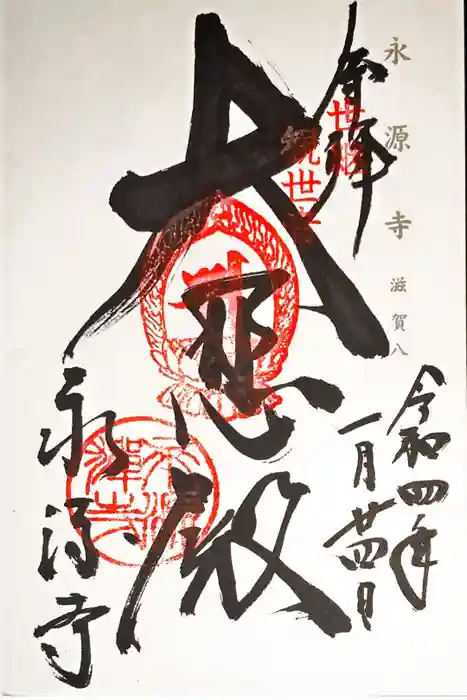 永源寺 滋賀八
奉拝
令和四年
一月廿四日
世継
観世音
大悲殿
永源寺